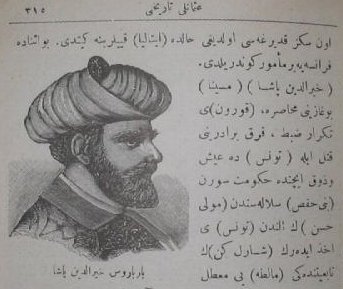 عثمانلی تاریخی
٣١٥
اون سكز قدیرغه سی اولدیغی حالده (ایتالیا) قییلرینه كیتدی. بو اثناده
فرانسه یه بر مأمور كوندریلدی.
(خیرالدین پاشا) (مسینا)
بوغازینی محاصره، (قورون) ی
تكرار ضبط، فرق برادرینی
قتل ایله (تونس) ده عیش
وذوق ایچنده حكومت سورن
(بنی حفص) سلاله سندن (مولی
حسن) ك الندن (تونس) ی
اخذ ایدەرك (شارل كن) ك
تابعیتنده كی (مالطه) یی معطل
بارباروس خیرالدین پاشا